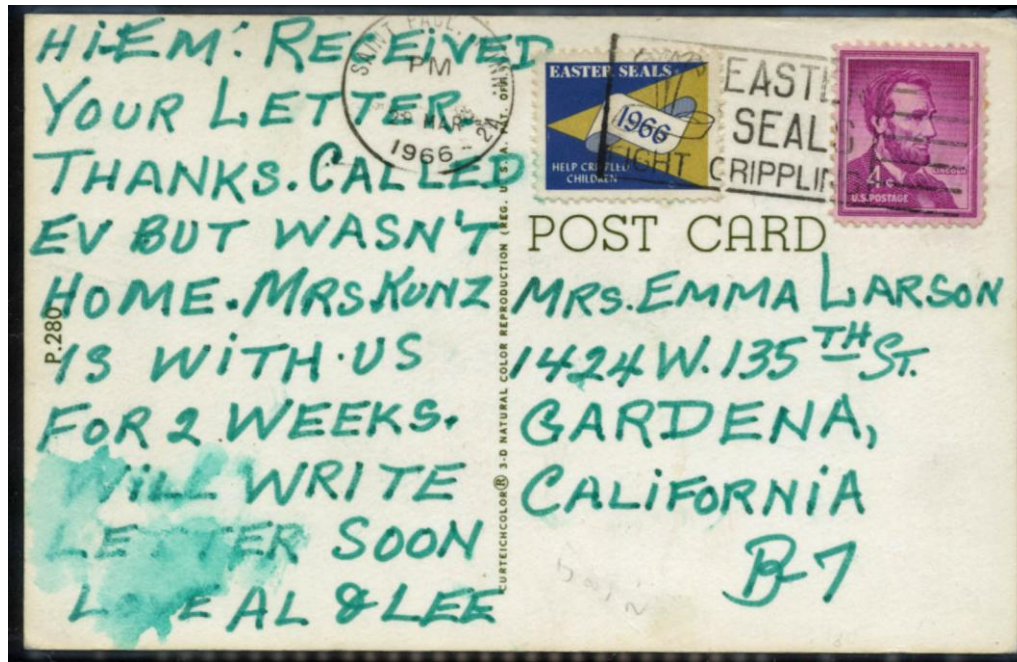 HiEM: RECEIVED
YOUR LETTER
THANKS. CALLED
EV BUT WASN'T
HOME. MRS KUNZ
IS WITH US
FOR 2 WEEKS.
WILL WRITE
LETTER SOON
LOVE AL & LEE
P.280
SAINT PAUL, MINN
PM
28 MAR
1966
EASTER SEALS
1966
HELP CRIPPLED
CHILDREN
EASTER
SEALS
FIGHT CRIPPLING
4¢
U.S. POSTAGE
LINCOLN
CURTEICHCOLOR® 3-D NATURAL COLOR REPRODUCTION (REG. U.S.A. PAT. OFF.)
POST CARD
MRS. EMMA LARSON
1424 W. 135TH ST.
GARDENA,
CALIFORNIA